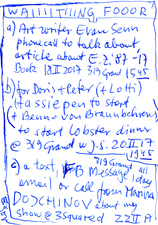 WAIIITIIING FOOOR
a) Art writer Evan Senn
phonecall to talk about
article about E.2. 87 - 17
Book 18 II 2017 319 Grand 1545
b) for Doris + Peter (+ Lotti)
+ Hassie pien to start
(+ Benno von Braunbehrens)
to start lobster dinner
@ 319 Grand w J.S. 20 II 17
1945
319 Grand
c) a text, FB Message all
email or call from Marina day
DOJCHINOV about my
show @ 3 Squared 22 II 17